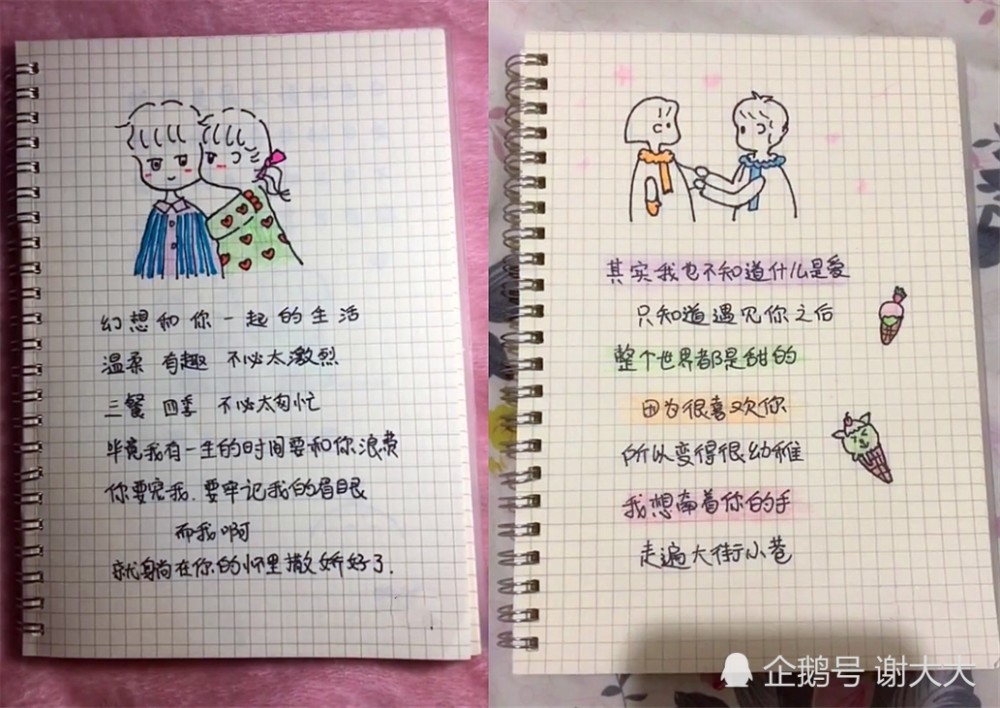 幻想和你一起的生活
温柔 有趣 不必太激烈
三餐 四季 不必太匆忙
毕竟我有一生的时间要和你浪费
你要宠我.要牢记我的眉眼
而我啊
就躺在你的怀里撒娇好了.
其实我也不知道什么是爱
只知道遇见你之后
整个世界都是甜的
因为很喜欢你
所以变得很幼稚
我想牵着你的手
走遍大街小巷
企鹅号 谢大大